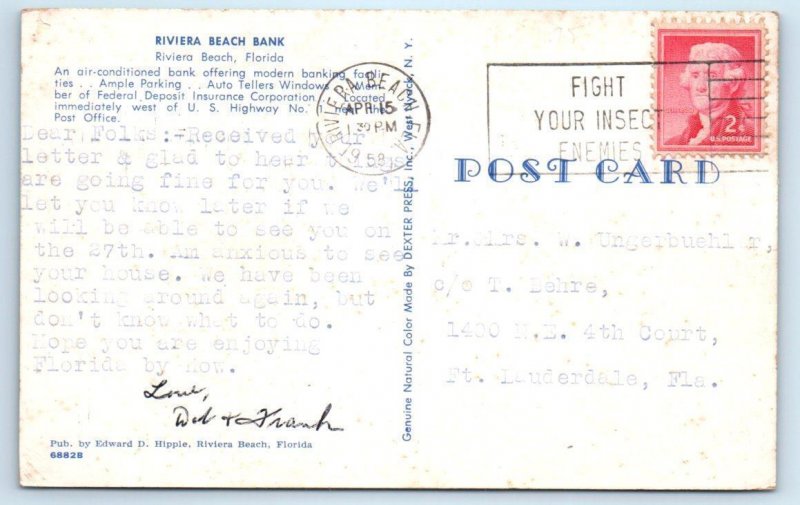 RIVIERA BEACH BANK
Riviera Beach, Florida
An air-conditioned bank offering modern banking facili-
ties . . Ample Parking . . Auto Tellers Windows . . Mem-
ber of Federal Deposit Insurance Corporation . . Located
immediately west of U. S. Highway No. near the
Post Office.
Dear Folks:-Received your
letter & glad to hear things
are going fine for you. We'll
let you know later if we
will be able to see you on
the 27th. Am anxious to see
your house. We have been
looking around again, but
don't know what to do.
Hope you are enjoying
Florida by now.
Love,
Dot & Frank
Pub. by Edward D. Hipple, Riviera Beach, Florida
68828
Genuine Natural Color Made By DEXTER PRESS, Inc., West Nyack, N. Y.
RIVIERA BEACH, FLA.
APR 15
1 30 PM
1958
FIGHT
YOUR INSECT
ENEMIES
2¢
U.S. POSTAGE
POST CARD
Mr. Mrs. W. Ungerbuehler,
c/o T. Behre,
1400 N.E. 4th Court,
Ft. Lauderdale, Fla.